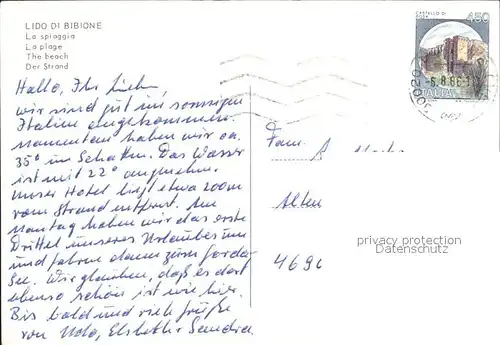 LIDO DI BIBIONE
La spiaggia
La plage
The beach
Der Strand
CASTELLO DI
450
-6.8.86
ITALIA
Hallo, Ihr Lieben,
wir sind gut im sonnigen
Italien angekommen.
Momentan haben wir ca.
35° im Schatten. Das Wasser
ist mit 22° angenehm.
Unser Hotel liegt etwa 200m
vom Strand entfernt. Am
Montag haben wir das erste
Drittel unseres Urlaubes um
und fahren dann zum Garda
See. Wir glauben, daß es dort
ebenso schön ist wie hier.
Bis bald und viele Grüße
von Udo, Elsbeth Sandra
Fam. A
Ahlen
privacy protection
Datenschutz
4690